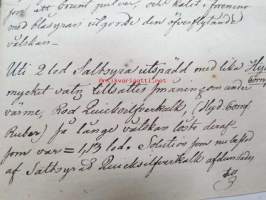 för att brunt pulver, och kalit i förening
med blåsyran utgjorde den öfverflytande
vätskan.
Uti 2 lod Saltsyra utspädd med lika
mycket vatn tillsattes småningom under
värme, Röd Quicksilfverkalk, (Hyd:
Ruber) så länge vätskan löste deraf
som var = 1/3 lod. Solution som mättad
af Saltsyrad Quicksilfverkalk afdunstades